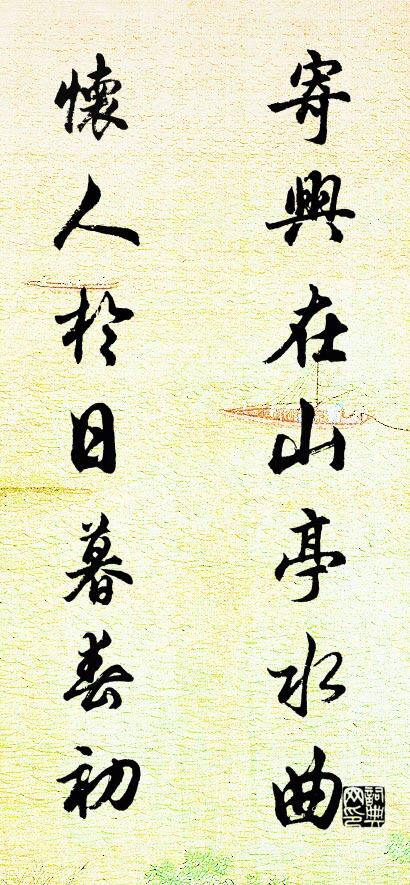 寄興在山亭水曲
懷人於日暮春初